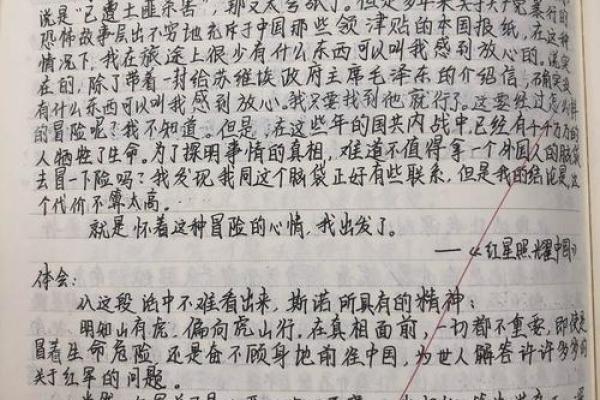 说是"已遭土匪杀害"，那又太客
恐怖故事层出不穷地充斥于中国那些领津贴的本国报纸，在这种
情况下，我在旅途上很少有什么东西可以叫我感到放心的。说实
在的，除了带着一封给苏维埃政府主席毛泽东的介绍信，确实没
有什么东西可以叫我感到放心。我只要找到他就行了。这要经过
的冒险呢？我不知道。但是，在这些年的国共内战中，已经有千千万万的
人牺牲了生命。为了探明事情的真相，难道不值得拿一个外国人的脑袋
去冒一下险吗？我发现我同这个脑袋正好有些联系，但是我的结论是，这
个代价不算太高。
就是怀着这种冒险的心情，我出发了。
——《红星照耀中国》
体会：
从这段话中不难看出来，斯诺所具有的精神：
明知山有虎，偏向虎山行。在真相面前，一切都不重要，即使是
冒着生命危险，还是奋不顾身地前往中国，为世人解答许许多多的
关于红军的问题。